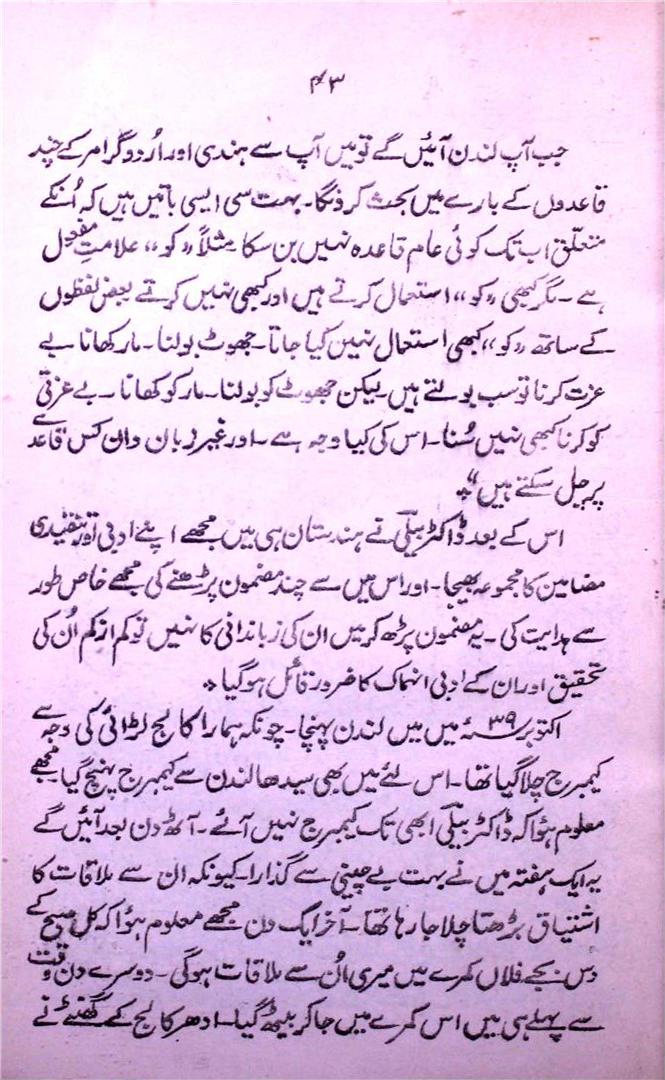 ۴۳
جب آپ لندن آئیں گے تو میں آپ سے ہندی اور اُردو گرامر کے چند
قاعدوں کے بارے میں بحث کرونگا۔ بہت سی ایسی باتیں ہیں کہ اُنکے
متعلّق اب تک کوئی عام قاعدہ نہیں بن سکا۔ مثلاً "کو" علامتِ مفعول
ہے۔ مگر کبھی "کو" استعمال کرتے ہیں اور کبھی نہیں کرتے بعض لفظوں
کے ساتھ "کو" کبھی استعمال نہیں کیا جاتا۔ جھوٹ بولنا۔ مار کھانا۔ بے
عزت کرنا تو سب بولتے ہیں۔ لیکن جھوٹ کو بولنا۔ مار کو کھانا۔ بے عزتی
کو کرنا کبھی نہیں سُنا۔ اس کی کیا وجہ ہے۔ اور غیر زبان دان کس قاعدے
پر چل سکتے ہیں"۔
اس کے بعد ڈاکٹر بیلی نے ہندستان ہی میں مجھے اپنے ادبی اور تنقیدی
مضامین کا مجموعہ بھیجا۔ اور اس میں سے چند مضمون پڑھنے کی مجھے خاص طور
سے ہدایت کی۔ یہ مضمون پڑھ کر میں ان کی زباندانی کا نہیں تو کم از کم اُن کی
تحقیق اور ان کے ادبی انہماک کا ضرور قائل ہو گیا۔
اکتوبر ۳۹ء میں میں لندن پہنچا۔ چونکہ ہمارا کالج لڑائی کی وجہ سے
کیمبرج چلا گیا تھا۔ اس لئے میں بھی سیدھا لندن سے کیمبرج پہنچ گیا۔ مجھے
معلوم ہؤا کہ ڈاکٹر بیلی ابھی تک کیمبرج نہیں آئے۔ آٹھ دن بعد آئیں گے
یہ ایک ہفتہ میں نے بہت بے چینی سے گذارا۔ کیونکہ ان سے ملاقات کا
اشتیاق بڑھتا چلا جا رہا تھا۔ آخر ایک دن مجھے معلوم ہؤا کہ کل صبح کے
دس بجے فلاں کمرے میں میری اُن سے ملاقات ہوگی۔ دوسرے دن وقت
سے پہلے ہی میں اس کمرے میں جا کر بیٹھ گیا۔ ادھر کالج کے گھنٹے نے